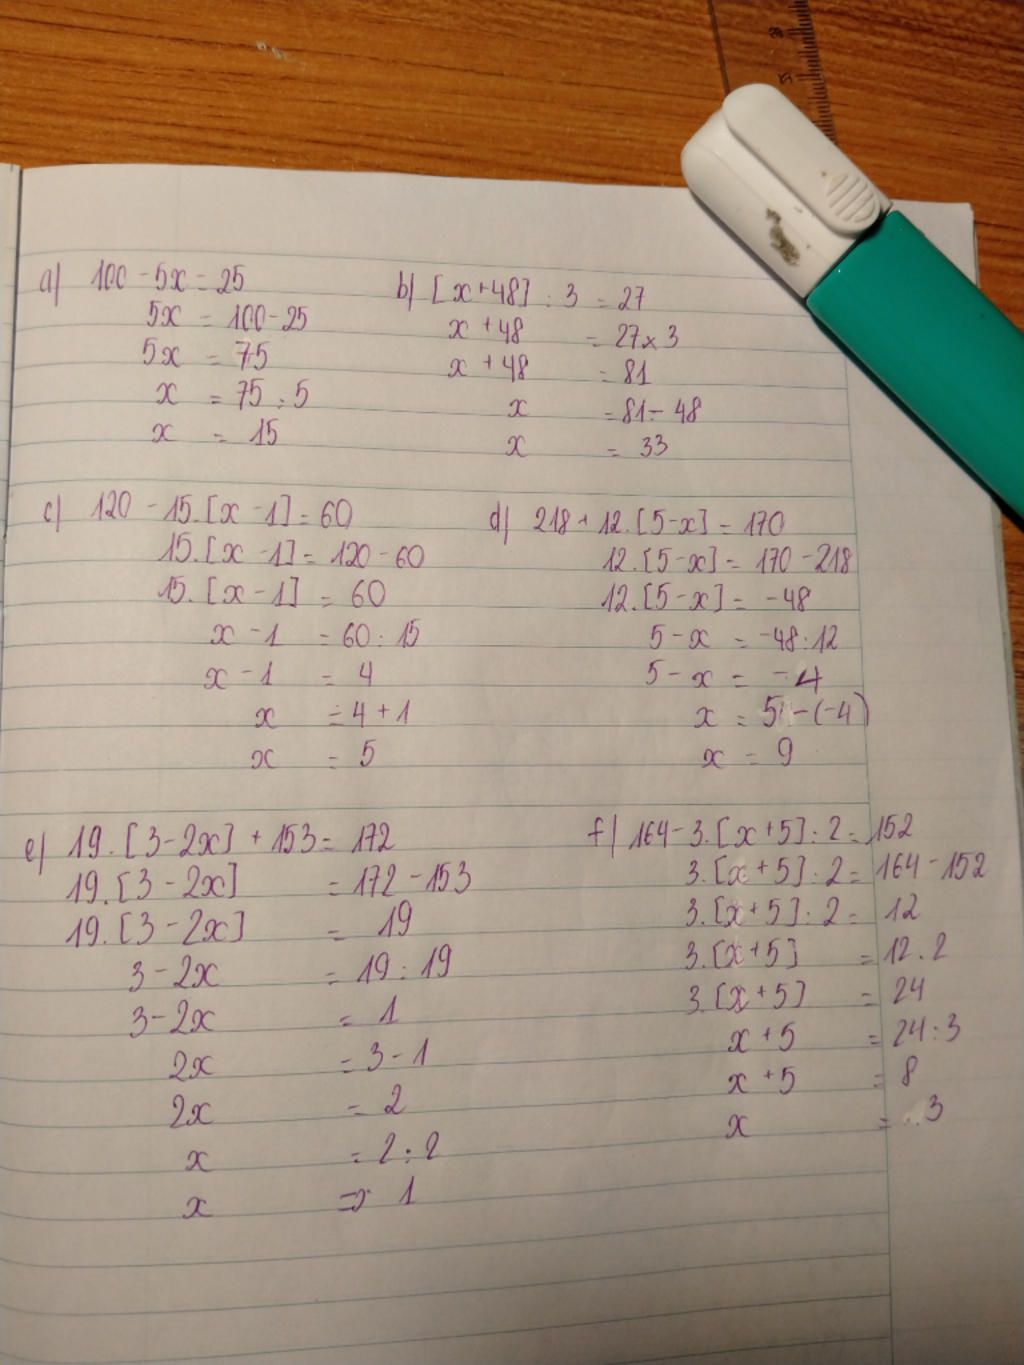 a) 100 - 5x = 25
5x = 100 - 25
5x = 75
x = 75 : 5
x = 15
b) [x+48] : 3 = 27
x + 48 = 27 x 3
x + 48 = 81
x = 81 - 48
x = 33
c) 120 - 15.[x - 1] = 60
15.[x - 1] = 120 - 60
15.[x - 1] = 60
x - 1 = 60 : 15
x - 1 = 4
x = 4 + 1
x = 5
d) 218 + 12.[5-x] = 170
12.[5-x] = 170 - 218
12.[5-x] = -48
5 - x = -48 : 12
5 - x = -4
x = 5 - (-4)
x = 9
e) 19.[3-2x] + 153 = 172
19.[3 - 2x] = 172 - 153
19.[3 - 2x] = 19
3 - 2x = 19 : 19
3 - 2x = 1
2x = 3 - 1
2x = 2
x = 2 : 2
x = 1
f) 164 - 3.[x+5] : 2 = 152
3.[x+5] : 2 = 164 - 152
3.[x+5] : 2 = 12
3.[x+5] = 12 . 2
3.[x+5] = 24
x + 5 = 24 : 3
x + 5 = 8
x = 3